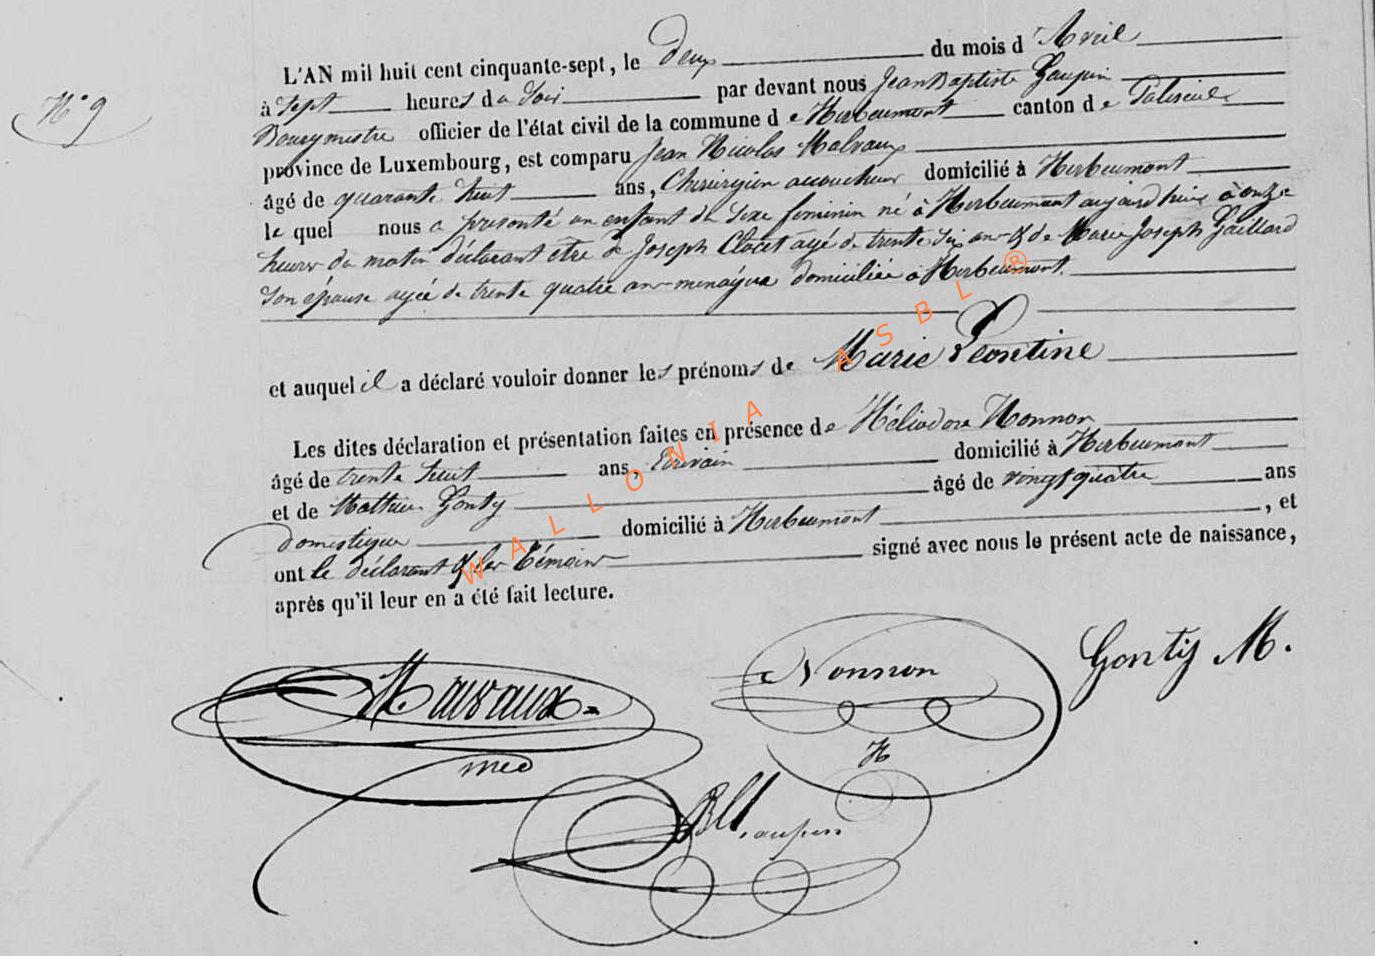 N° 9
L'AN mil huit cent cinquante-sept, le deux du mois d'Avril
à sept heures du soir par devant nous Jean Baptiste Gaupin
Bourgmestre officier de l'état civil de la commune de Herbeumont canton de Paliseul
province de Luxembourg, est comparu Jean Nicolas Malvaux
âgé de quarante huit ans, Chirurgien accoucheur domicilié à Herbeumont
le quel nous a présenté un enfant du sexe feminin né à Herbeumont aujourd'hui à onze
heures du matin déclarant être de Joseph Clocet agé de trente six ans & de Marie Joseph Gaillard
son épouse agée de trente quatre ans menagère domiciliée à Herbeumont
et auquel il a déclaré vouloir donner les prénoms de Marie Leontine
Les dites déclaration et présentation faites en présence de Héliodore Nonnon
âgé de trente huit ans, Ecrivain domicilié à Herbeumont
et de Mathieu Gonty âgé de vingt quatre ans
domestique domicilié à Herbeumont, et
ont le déclarant & les témoins signé avec nous le présent acte de naissance,
après qu'il leur en a été fait lecture.
Malvaux
med
Nonnon
H
Gonty M.
Gaupin
WALLONIA ASBL ®